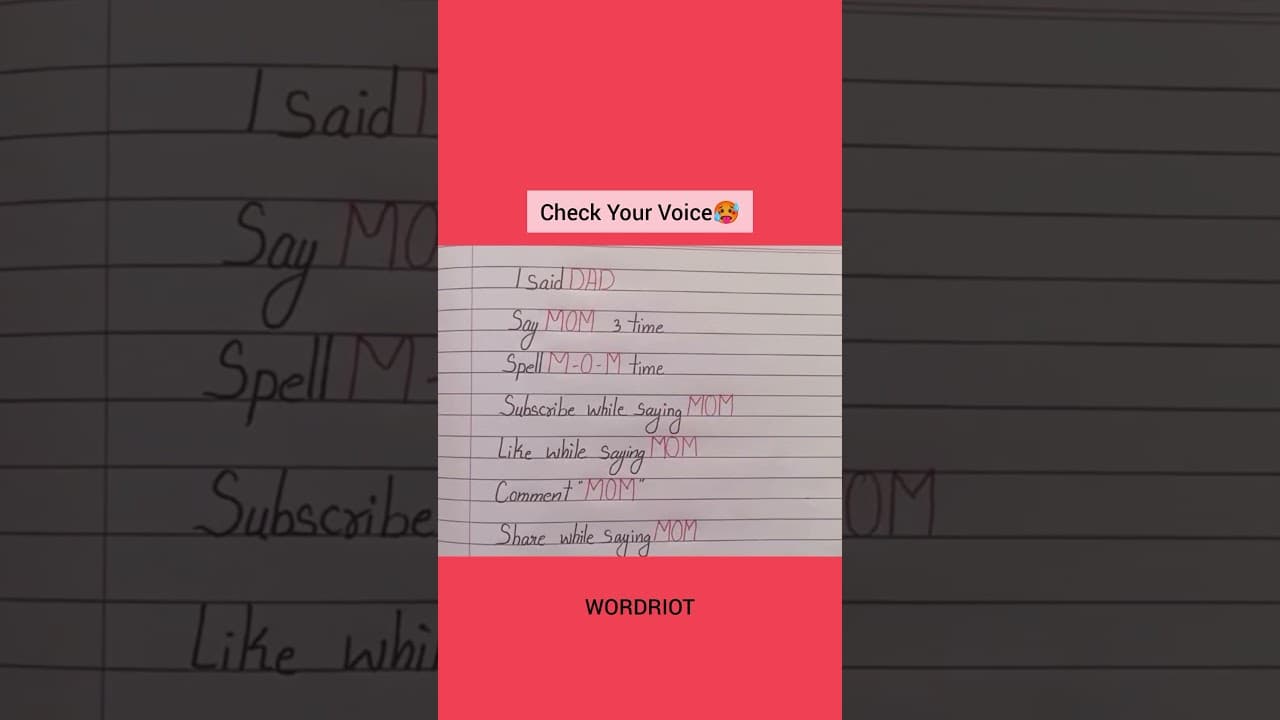 Check Your Voice🥵
I said DAD
Say MOM 3 time
Spell M-O-M time
Subscribe while saying MOM
Like while saying MOM
Comment "MOM"
Share while saying MOM
WORDRIOT